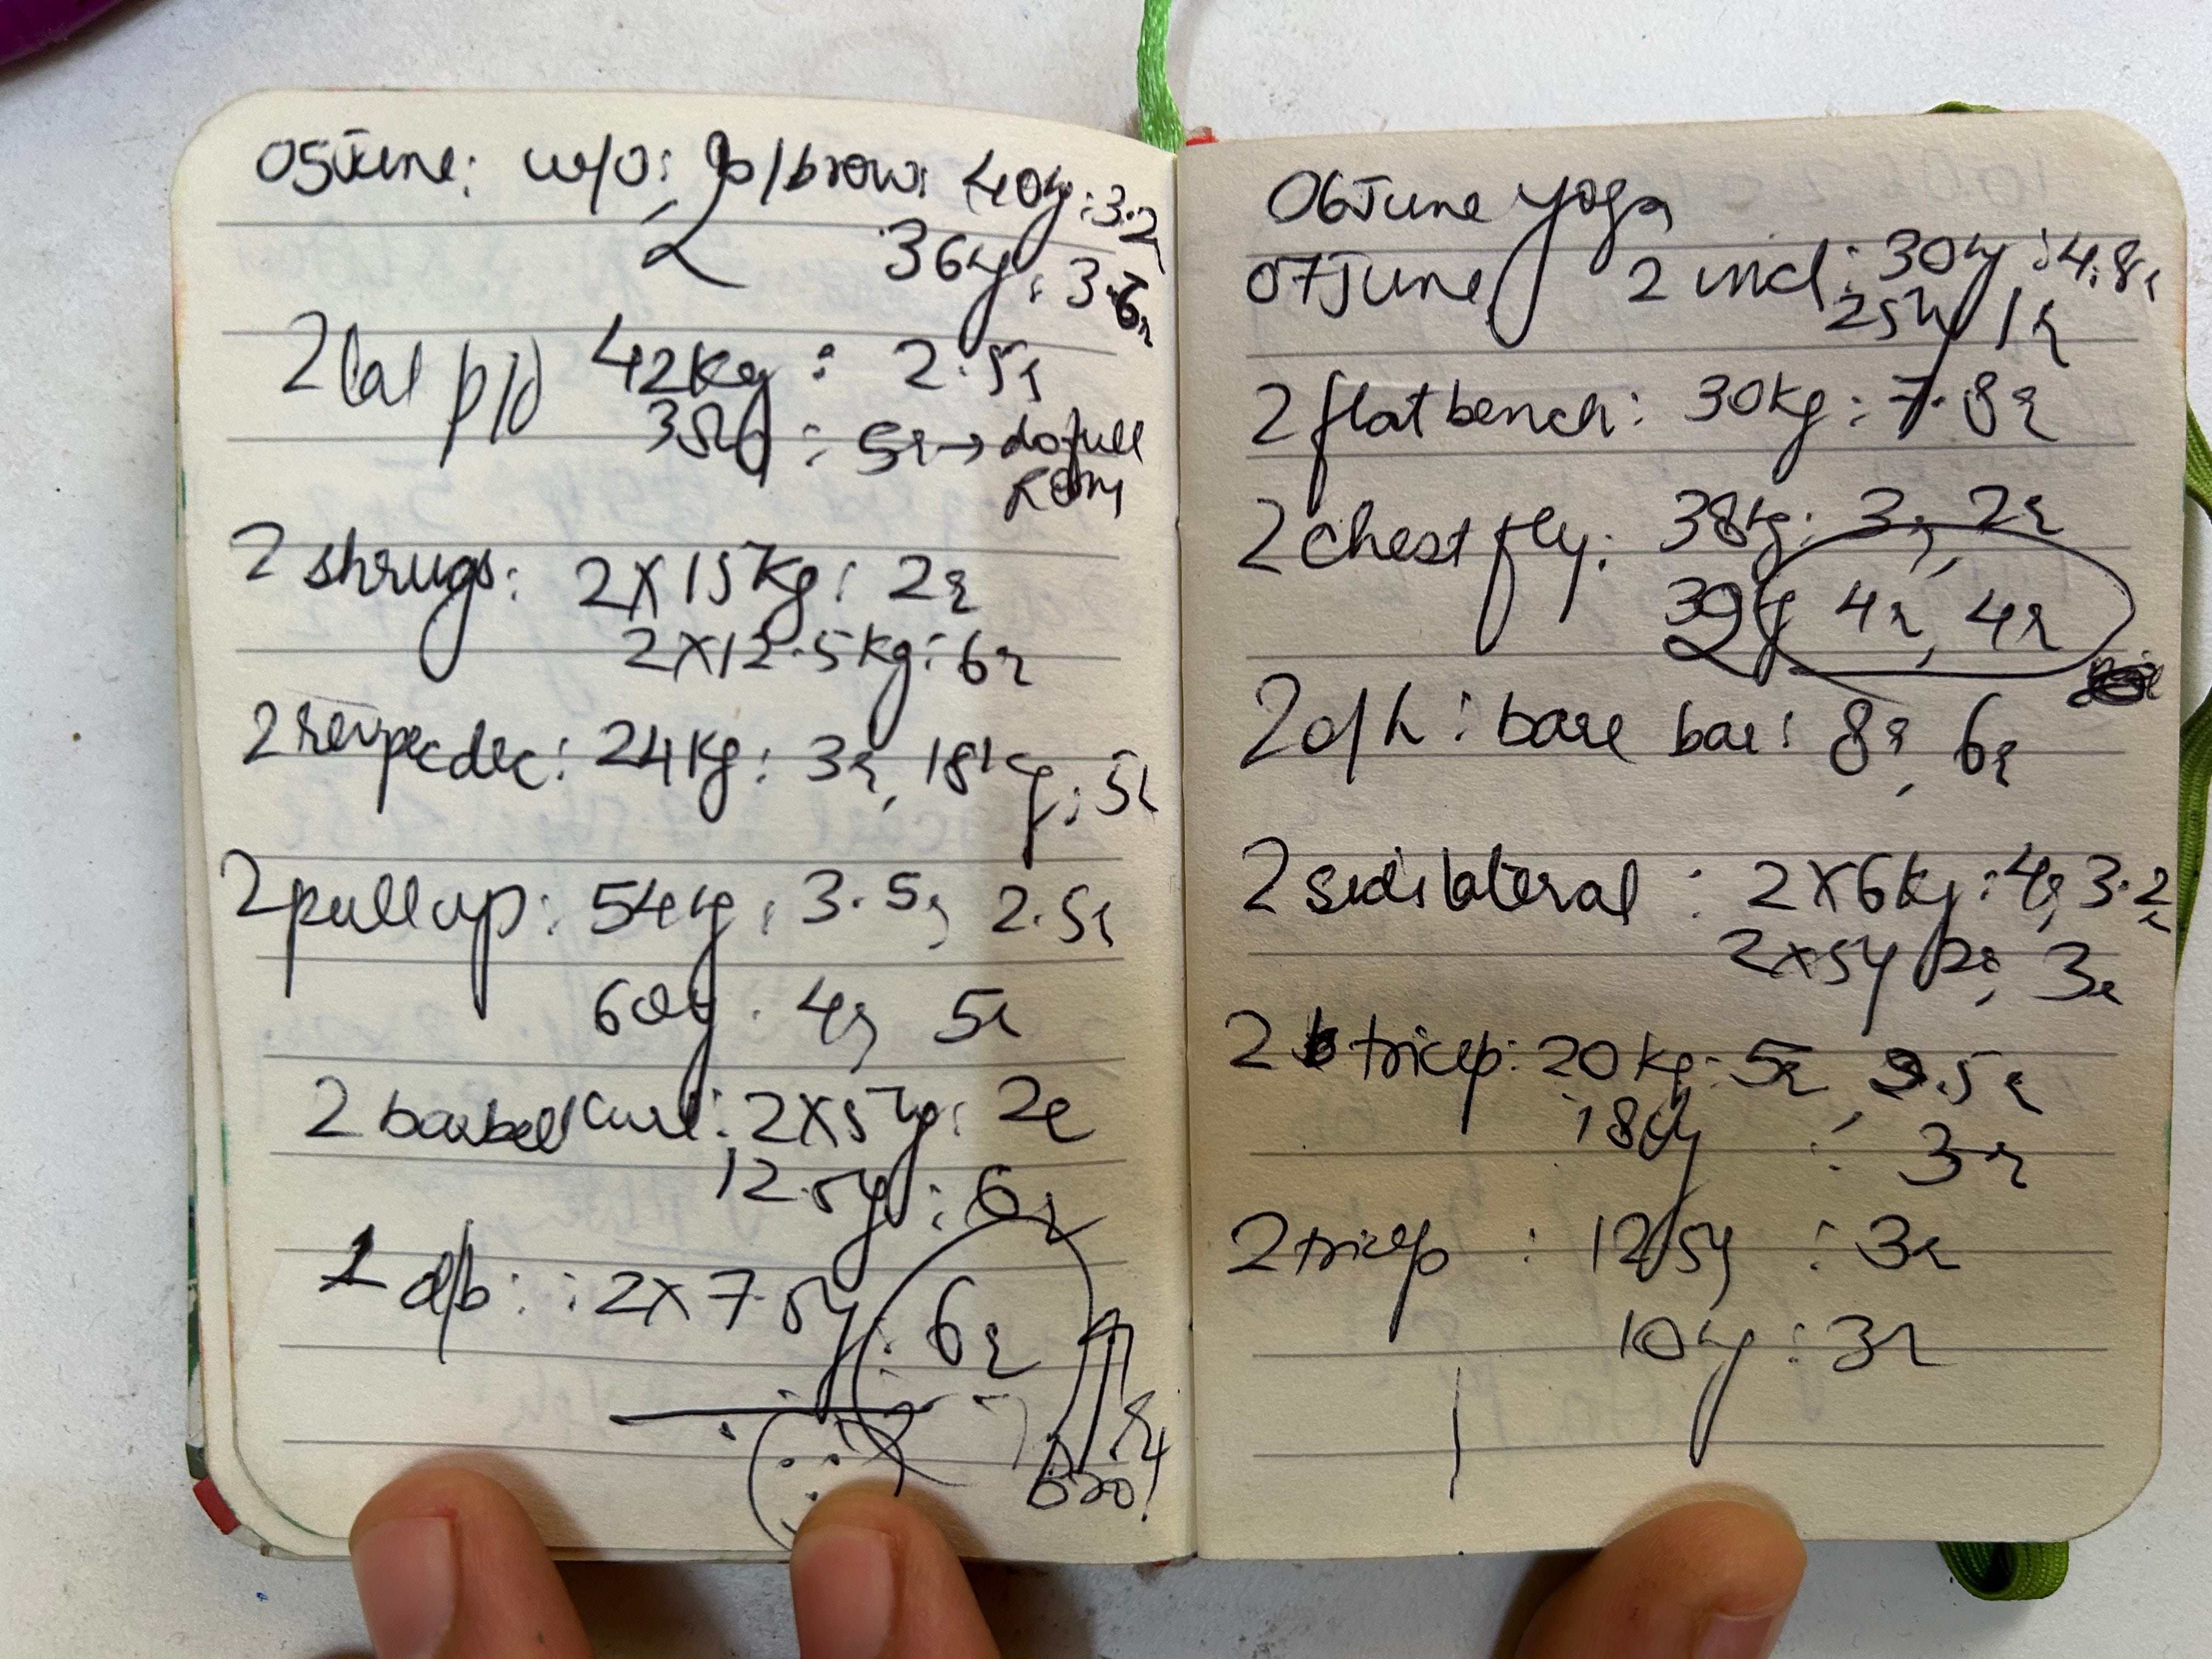 05June: w/o: b/brow: 40kg: 3.2r
2 36kg: 3.6r
2 lat p/d 42kg: 2.5r
35kg: 5r → do full
ROM
2 shrugs: 2X15kg: 2r
2X12.5kg: 6r
2 rev pec dec: 24kg: 3r, 18kg: 5r
2 pull up: 54kg: 3.5, 2.5r
60kg: 4r, 5r
2 barbell curl: 2X5kg: 2r
12.5kg: 6r
1 d/b: : 2X7.5kg: 6r
bro!
06June yoga
07June 2 incl: 30kg: 4.8r
25kg 1r
2 flat bench: 30kg: 7.8r
2 chest fly: 38kg: 3r, 2r
4r, 4r
2 o/h: bare bar: 8r, 6r
2 side lateral: 2X6kg: 4r, 3.2r
2X5kg 2r, 3r
2 tricep: 20kg: 5r, .5r
18kg: 3r
2 tricep: 12.5kg: 3r
10kg: 3r